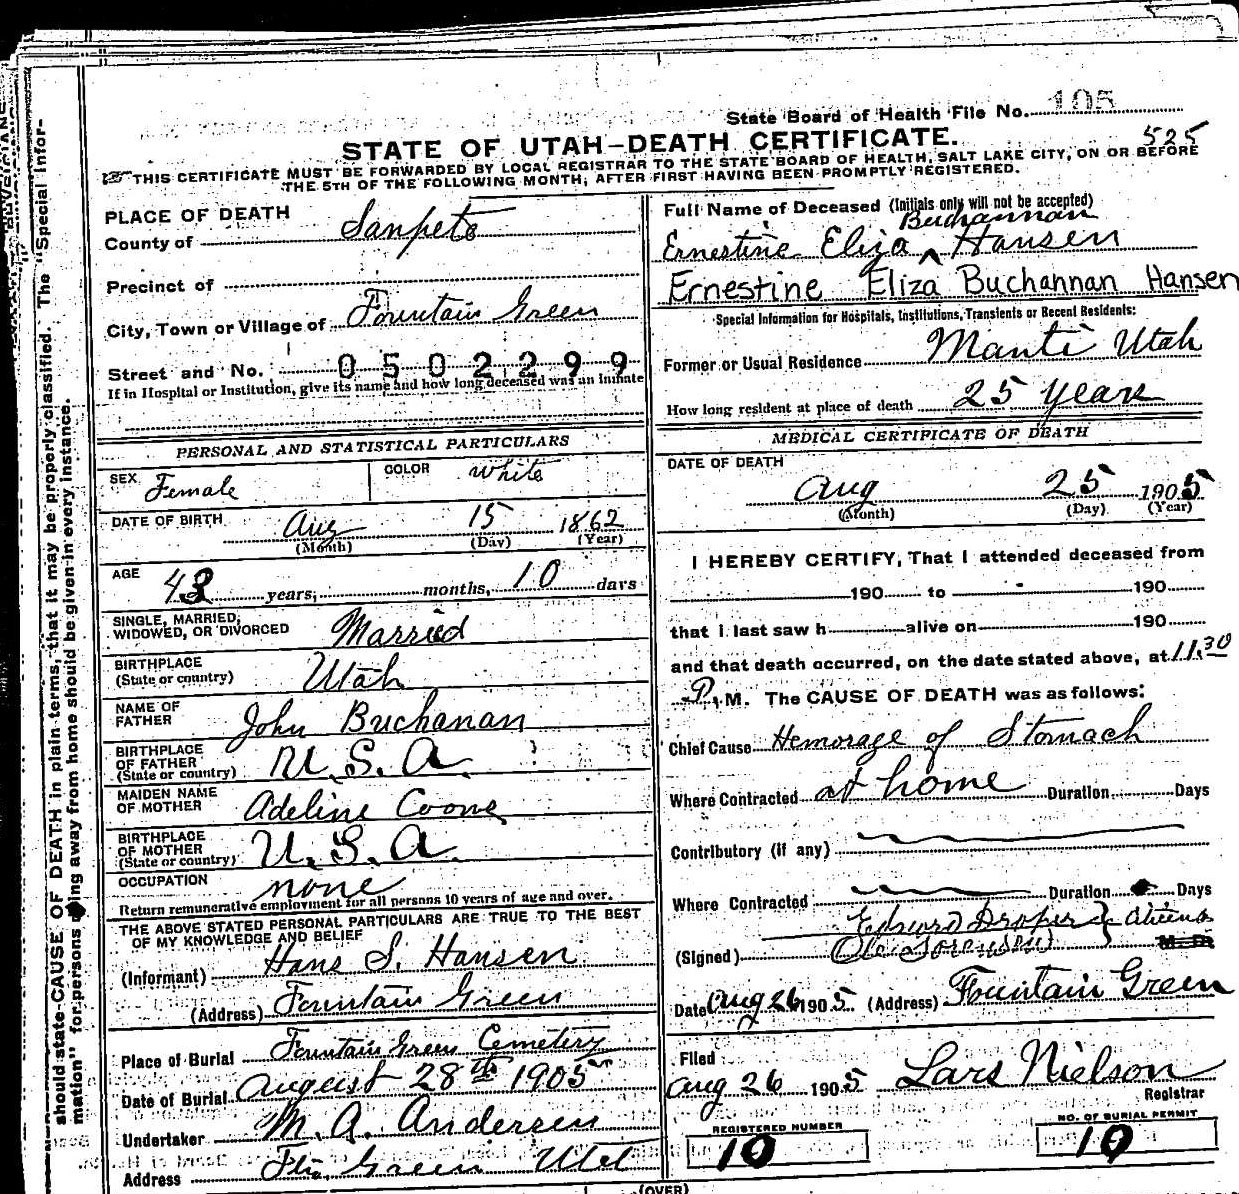 State Board of Health File No. 105
525
STATE OF UTAH—DEATH CERTIFICATE.
THIS CERTIFICATE MUST BE FORWARDED BY LOCAL REGISTRAR TO THE STATE BOARD OF HEALTH, SALT LAKE CITY, ON OR BEFORE
THE 5TH OF THE FOLLOWING MONTH, AFTER FIRST HAVING BEEN PROMPTLY REGISTERED.
should state CAUSE OF DEATH in plain terms, that it may be properly classified. The "Special Infor-
mation" for persons dying away from home should be given in every instance.
PLACE OF DEATH
County of Sanpete
Precinct of
City, Town or Village of Fountain Green
Street and No. 0502299
If in Hospital or Institution, give its name and how long deceased was an inmate
PERSONAL AND STATISTICAL PARTICULARS
SEX Female COLOR White
DATE OF BIRTH Aug 15 1862
(Month) (Day) (Year)
AGE 43 years, months, 10 days
SINGLE, MARRIED,
WIDOWED, OR DIVORCED Married
BIRTHPLACE
(State or country) Utah
NAME OF
FATHER John Buchanan
BIRTHPLACE
OF FATHER
(State or country) U.S.A.
MAIDEN NAME
OF MOTHER Adeline Coons
BIRTHPLACE
OF MOTHER
(State or country) U.S.A.
OCCUPATION none
Return remunerative employment for all persons 10 years of age and over.
THE ABOVE STATED PERSONAL PARTICULARS ARE TRUE TO THE BEST
OF MY KNOWLEDGE AND BELIEF
(Informant) Hans S. Hansen
(Address) Fountain Green
Place of Burial Fountain Green Cemetery
Date of Burial August 28th 1905
Undertaker M. A. Andersen
Address Ftn Green Utah
Full Name of Deceased (Initials only will not be accepted)
Buchannan
Ernestine Eliza ^ Hansen
Ernestine Eliza Buchannan Hansen
Special Information for Hospitals, Institutions, Transients or Recent Residents:
Former or Usual Residence Manti Utah
How long resident at place of death 25 years
MEDICAL CERTIFICATE OF DEATH
DATE OF DEATH
Aug 25 1905
(Month) (Day) (Year)
I HEREBY CERTIFY, That I attended deceased from
190 to 190
that I last saw h alive on 190
and that death occurred, on the date stated above, at 11.30
P.M. The CAUSE OF DEATH was as follows:
Chief Cause Hemorage of Stomach
Where Contracted at home Duration Days
Contributory (if any)
Where Contracted Duration Days
Edward Droper
(Signed) Ole Sorensen M.D.
Date Aug 26 1905 (Address) Fountain Green
Filed
Aug 26 1905 Lars Nielson
Registrar
REGISTERED NUMBER
10
NO. OF BURIAL PERMIT
10
(OVER)